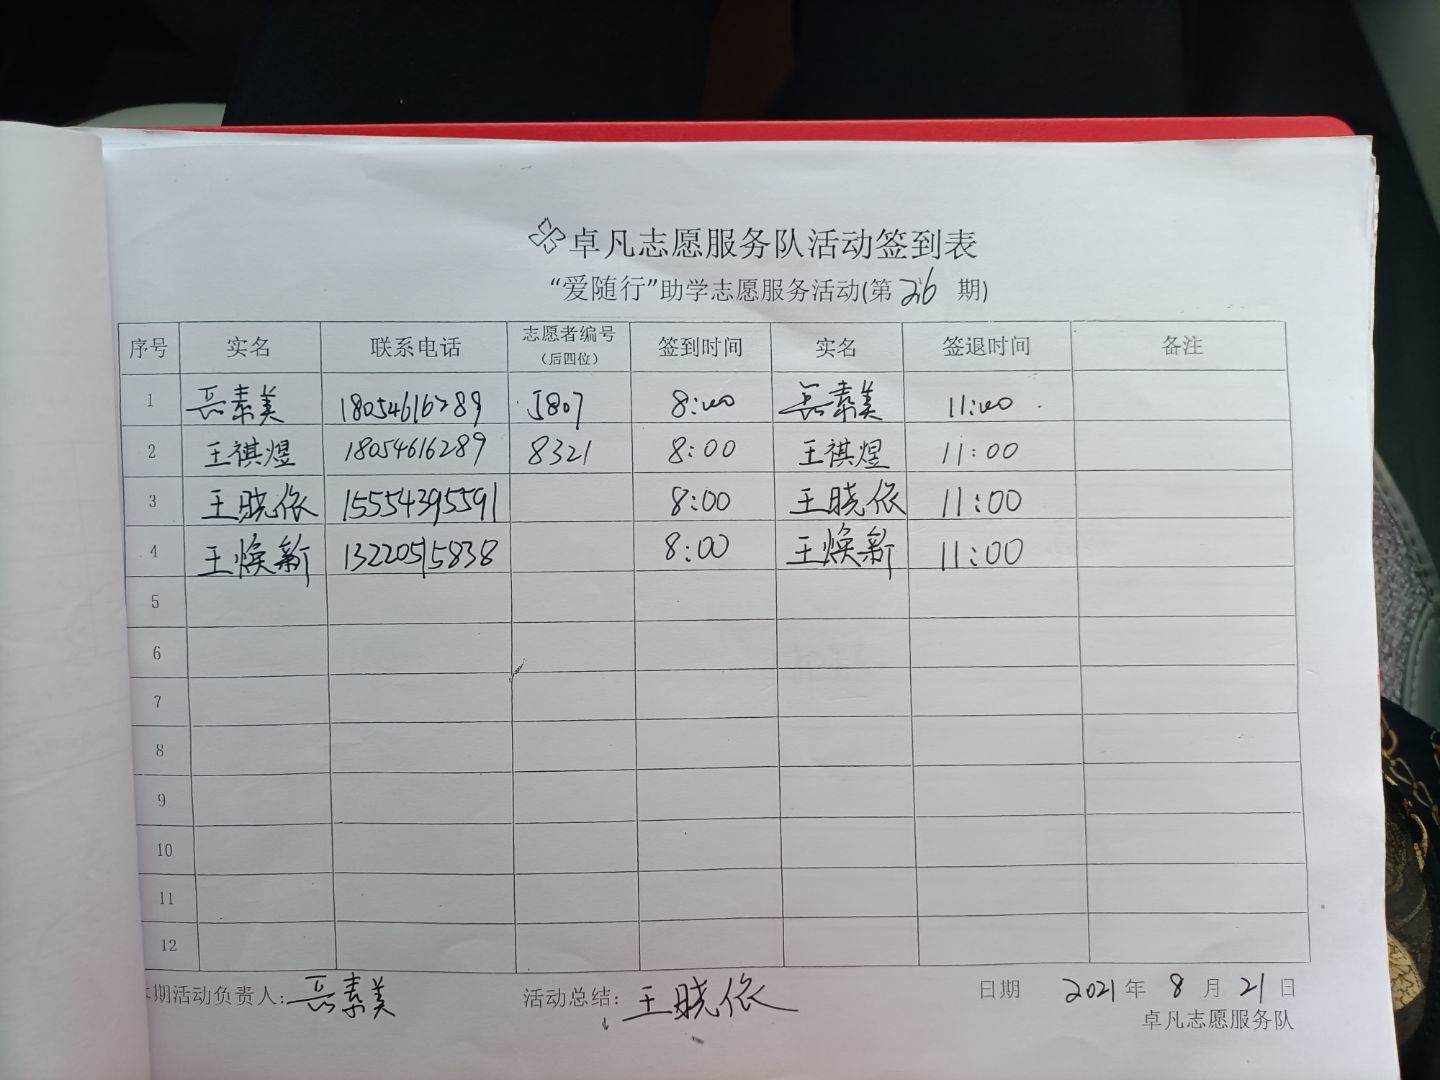 卓凡志愿服务队活动签到表
“爱随行”助学志愿服务活动(第 26 期)
序号 实名 联系电话 志愿者编号（后四位） 签到时间 实名 签退时间 备注
1 岳素美 18054616289 5807 8:00 岳素美 11:00
2 王祺煜 18054616289 8321 8:00 王祺煜 11:00
3 王晓依 15554395591 8:00 王晓依 11:00
4 王焕新 13220515838 8:00 王焕新 11:00
5
6
7
8
9
10
11
12
本期活动负责人: 岳素美 活动总结: 王晓依 日期 2021 年 8 月 21 日
卓凡志愿服务队